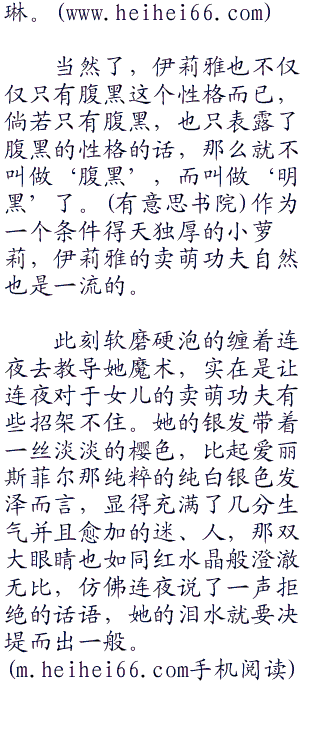 琳。(www.heihei66.com)
当然了，伊莉雅也不仅
仅只有腹黑这个性格而已，
倘若只有腹黑，也只表露了
腹黑的性格的话，那么就不
叫做‘腹黑’，而叫做‘明
黑’了。(有意思书院)作为
一个条件得天独厚的小萝
莉，伊莉雅的卖萌功夫自然
也是一流的。
此刻软磨硬泡的缠着连
夜去教导她魔术，实在是让
连夜对于女儿的卖萌功夫有
些招架不住。她的银发带着
一丝淡淡的樱色，比起爱丽
斯菲尔那纯粹的纯白银色发
泽而言，显得充满了几分生
气并且愈加的迷、人，那双
大眼睛也如同红水晶般澄澈
无比，仿佛连夜说了一声拒
绝的话语，她的泪水就要决
堤而出一般。
(m.heihei66.com手机阅读)